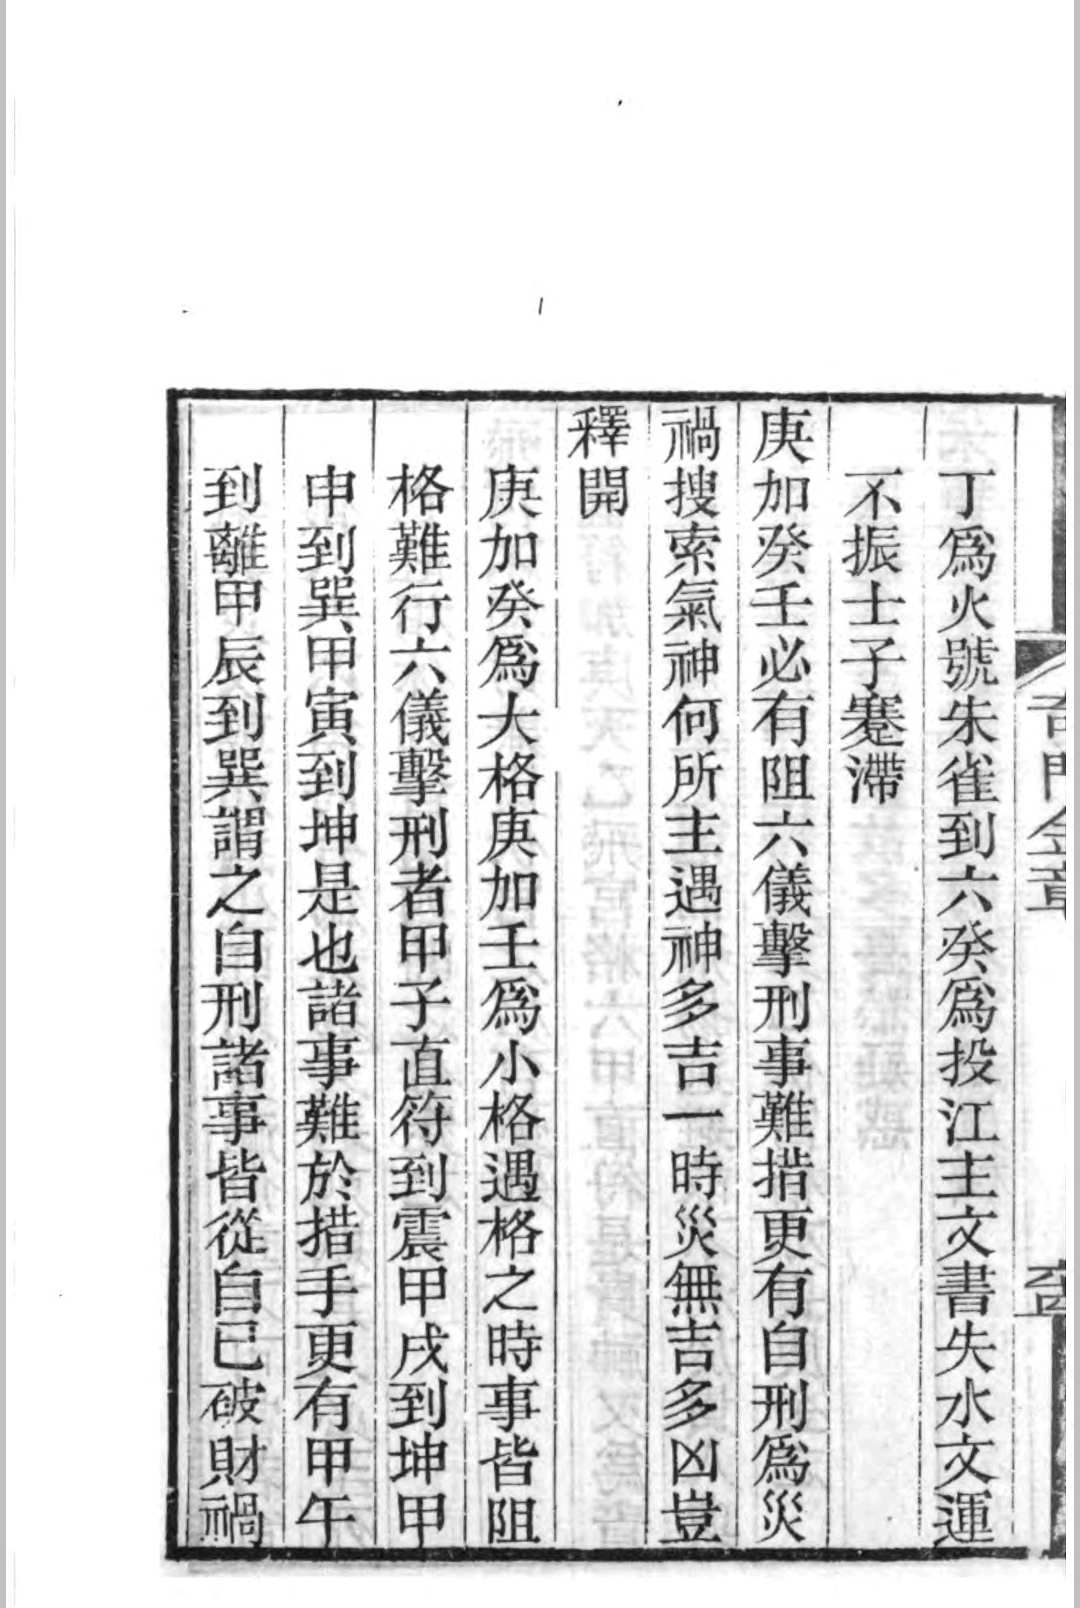 奇門金章
丁爲火號朱雀到六癸爲投江主文書失水文運
不振士子蹇滯
庚加癸壬必有阻六儀擊刑事難措更有自刑爲災
禍搜索氣神何所主遇神多吉一時災無吉多凶豈
釋開
庚加癸爲大格庚加壬爲小格遇格之時事皆阻
格難行六儀擊刑者甲子直符到震甲戌到坤甲
申到巽甲寅到坤是也諸事難於措手更有甲午
到離甲辰到巽謂之自刑諸事皆從自已破財禍